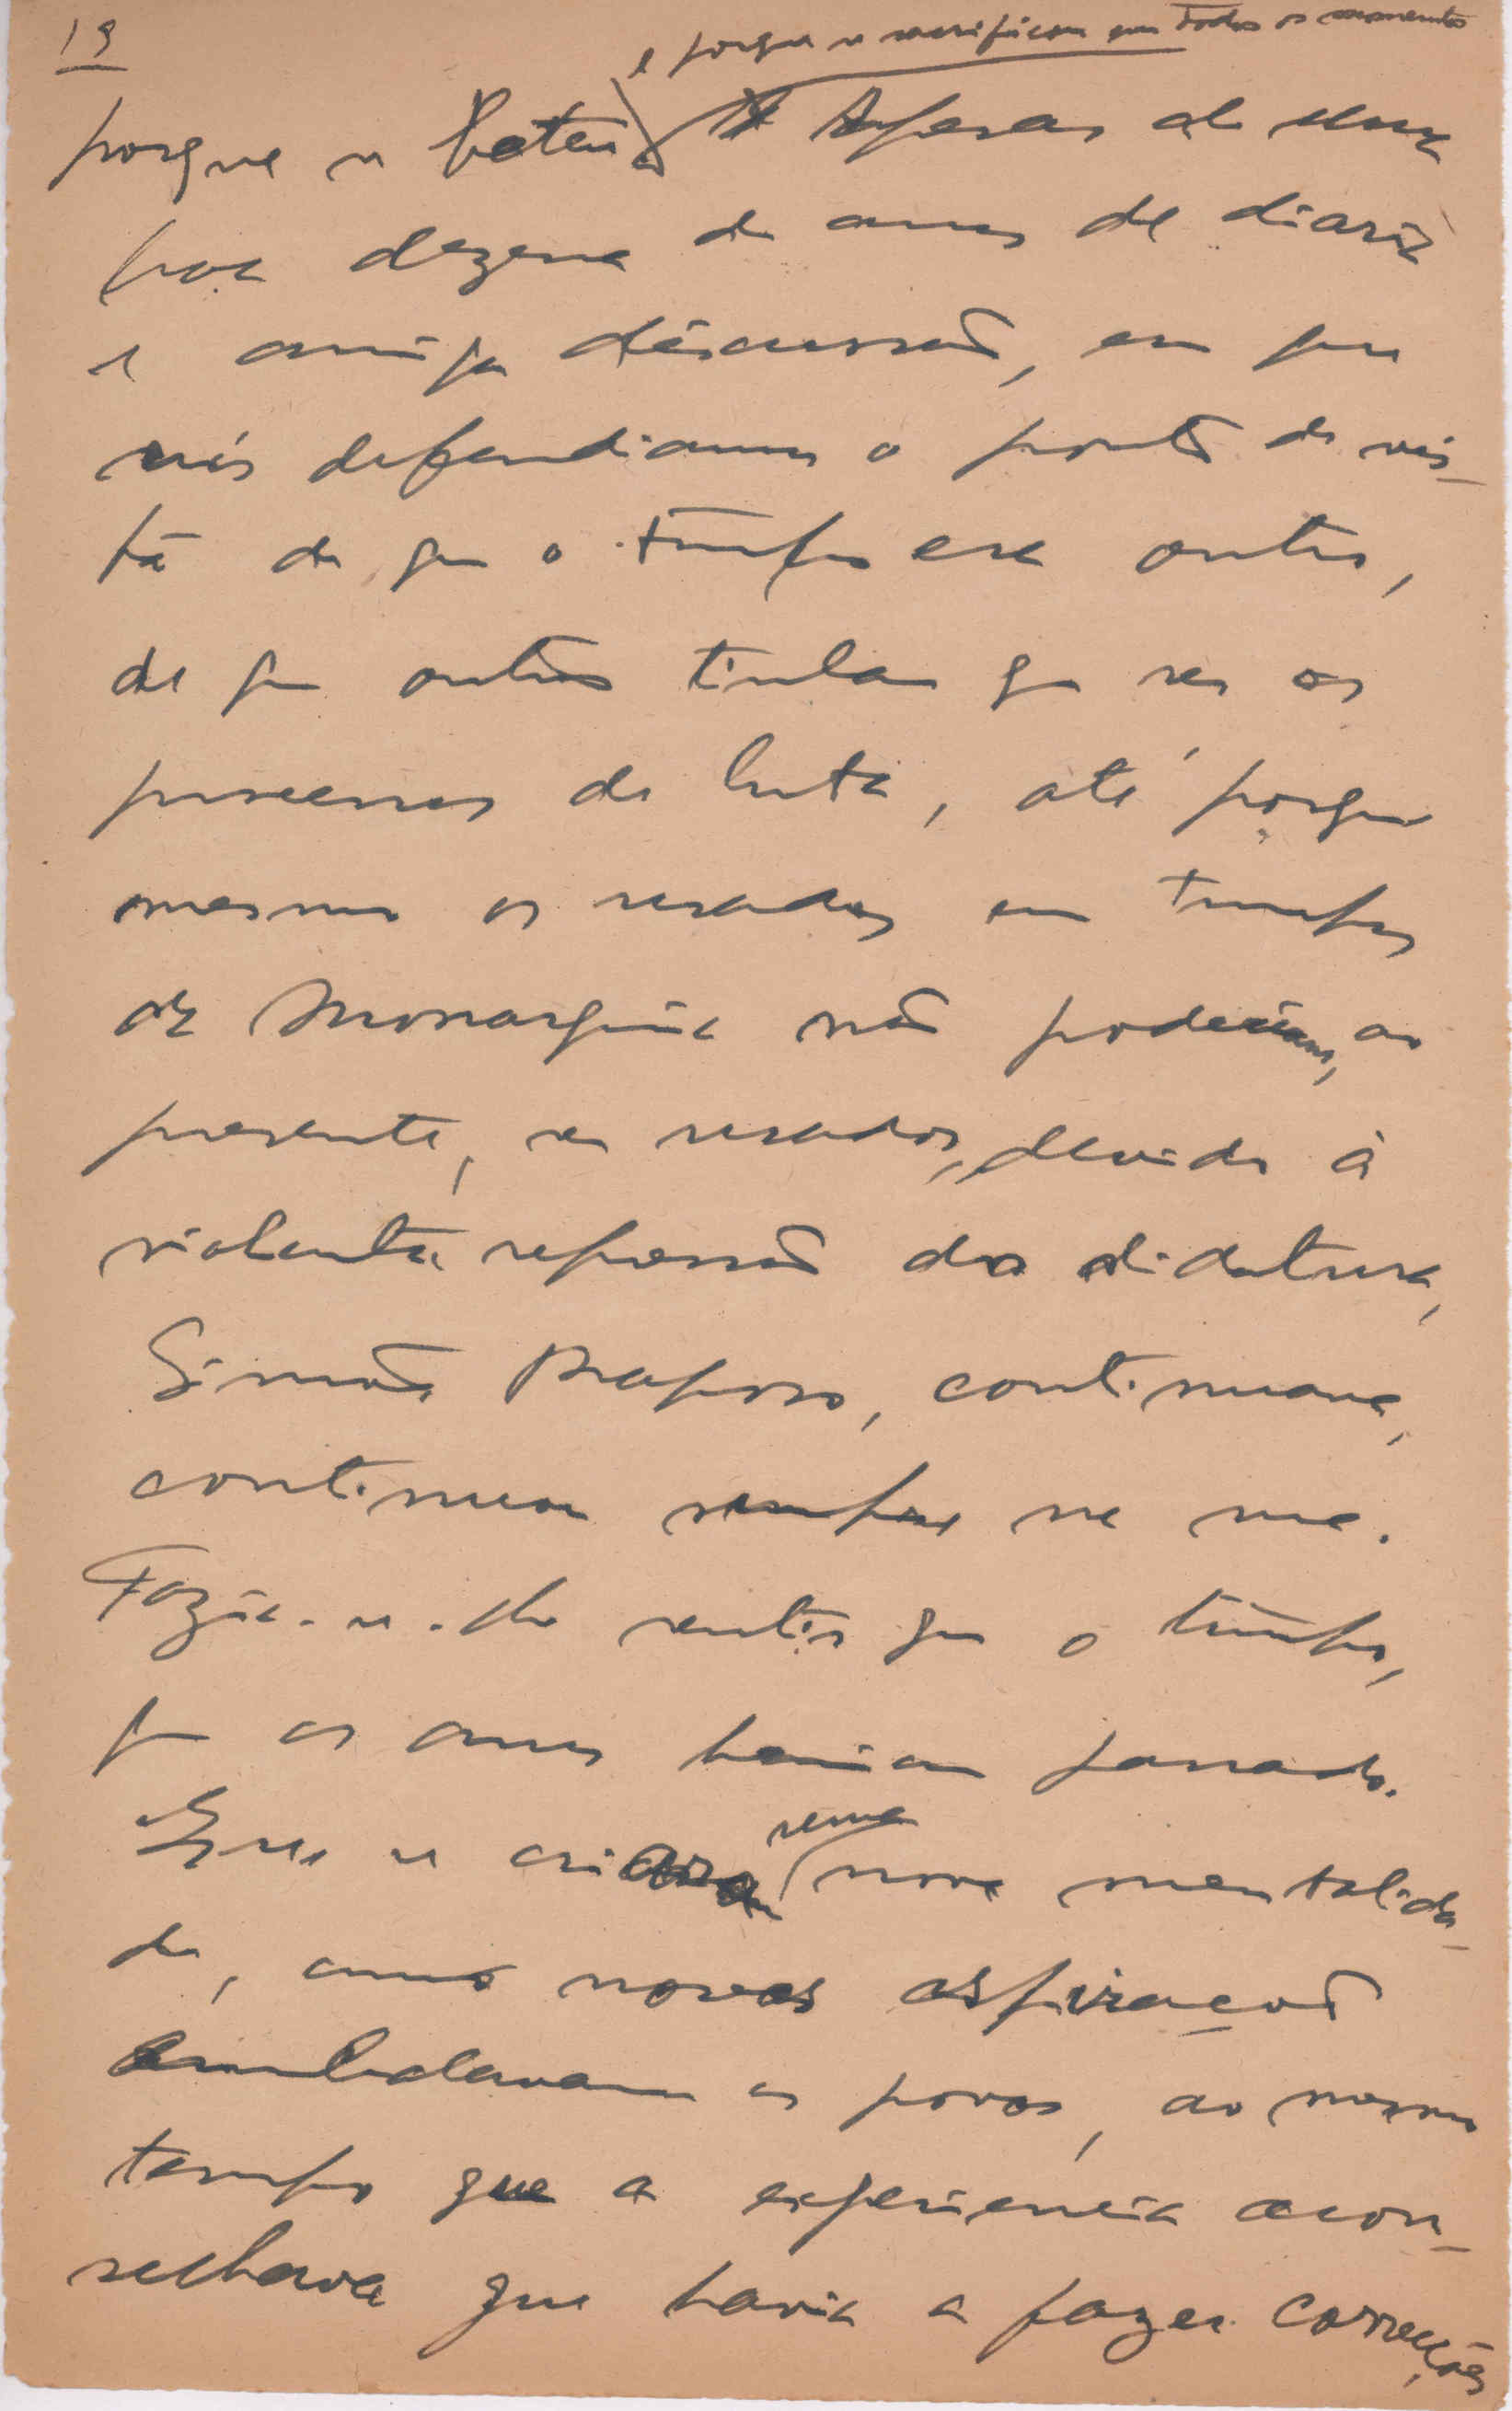 19
e porque se sacrificou em todos os momentos
porque se bateu. Apesar de uma
boa dezena de anos de diária
e amiga discussão, em que
nós defendiamos o ponto de vis-
ta de que o tempo era outro,
de que outros tinham que ser os
processos de luta, até porque
mesmo os usados em tempos
da Monarquia não poderiam, ao
presente, ser usados, devido à
violenta repressão da ditadura,
Simões Raposo, continuava,
continuou sempre na sua.
Fazia-se-lhe sentir que o tempo,
que os anos haviam passado.
Que se criara uma nova mentalida-
de, novas aspirações
os povos, ao mesmo
tempo que a experiencia acon-
selhava que havia a fazer correcções